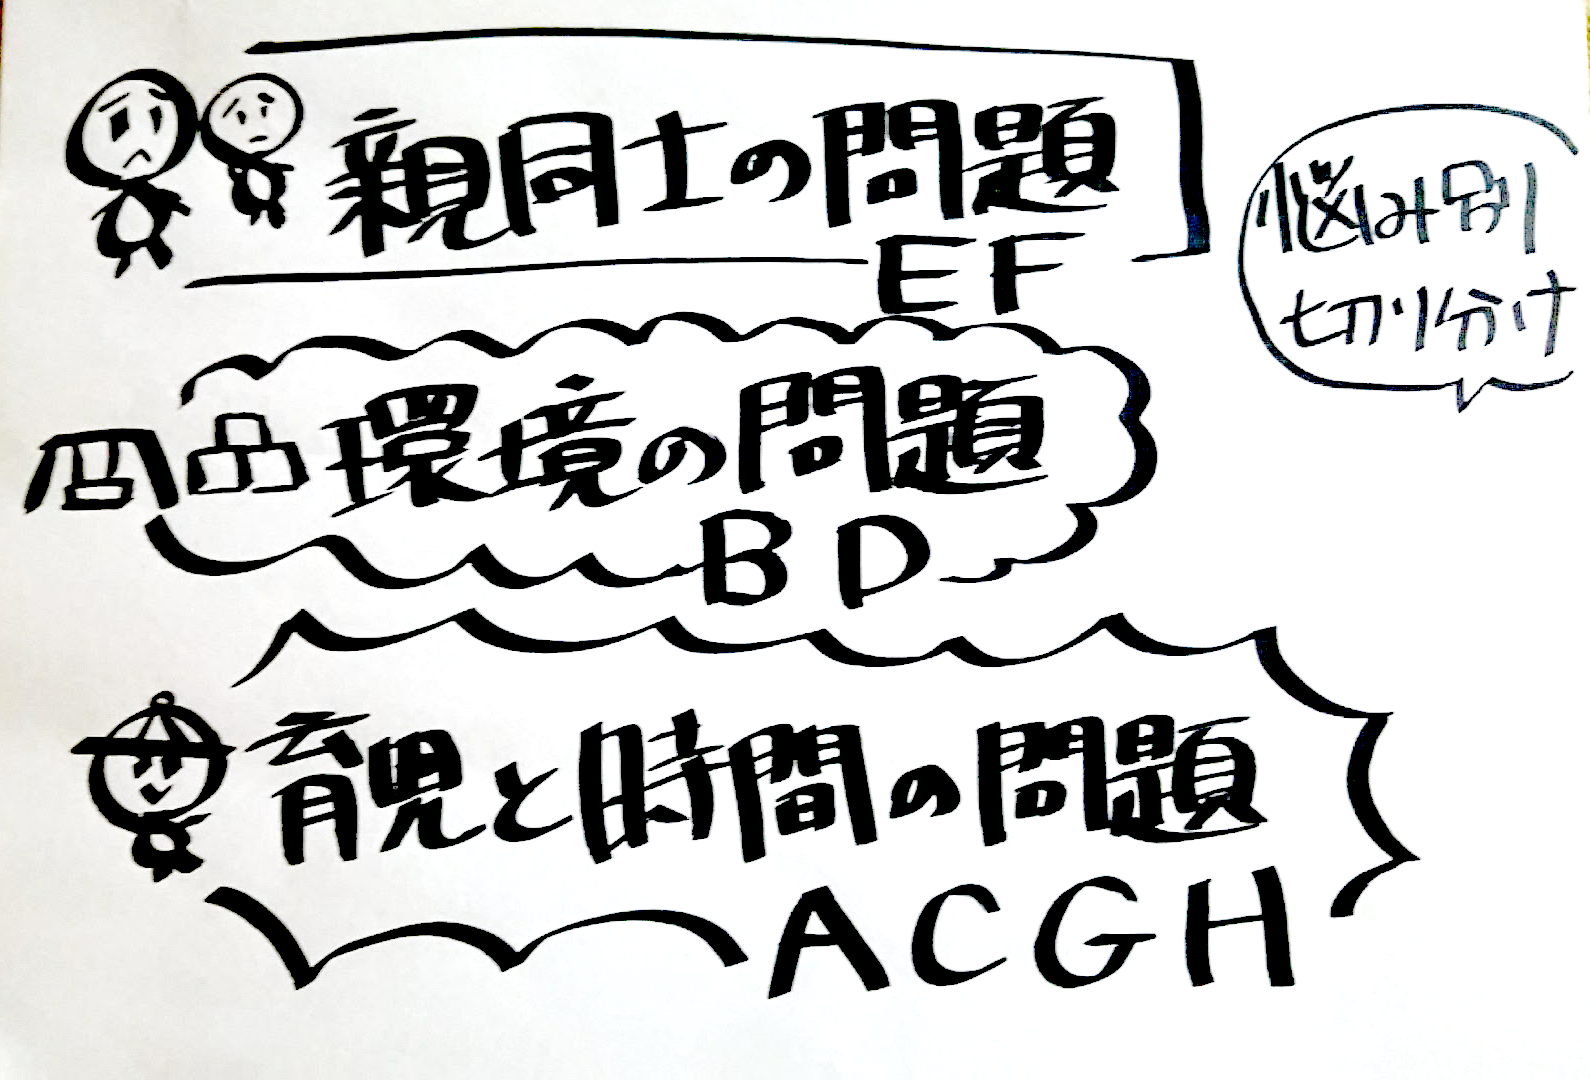 親同士の問題
EF
悩み別
切り分け
環境の問題
BD
育児と時間の問題
ACGH